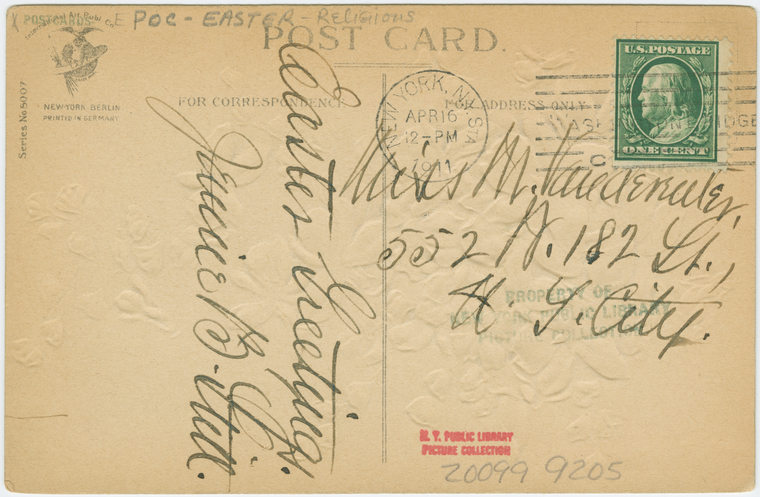 POSTCARDS E POC - EASTER - Religions
POST CARD.
International Art Publ. Co.
NEW-YORK BERLIN
PRINTED IN GERMANY
Series No 5007
FOR CORRESPONDENCE
FOR ADDRESS ONLY
NEW YORK, N.Y. STA
APR 16
12-PM
1911
U.S. POSTAGE
ONE CENT
Easter Greetings.
Jennie B.
Miss M.
552 W. 182 St.,
N. Y. City.
PROPERTY OF
NEW YORK PUBLIC LIBRARY
PICTURE COLLECTION
N. Y. PUBLIC LIBRARY
PICTURE COLLECTION
20099 9205